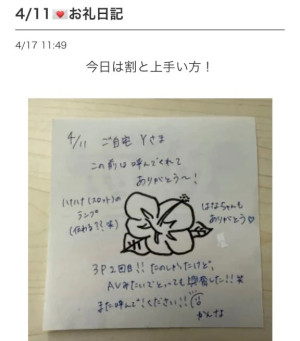 4/11💌お礼日記
4/17 11:49
今日は割と上手い方！
4/11 ご自宅 Yさま
この前は 呼んでくれて
ありがとう〜！
ハナハナ(スロット)の
ランプ
(伝わる??笑)
はなちゃんも
ありがとう♡
3P 2回目!! たのしかったけど、
AVみたいで とっても 興奮した!! 笑
また呼んで ください!!
かんな